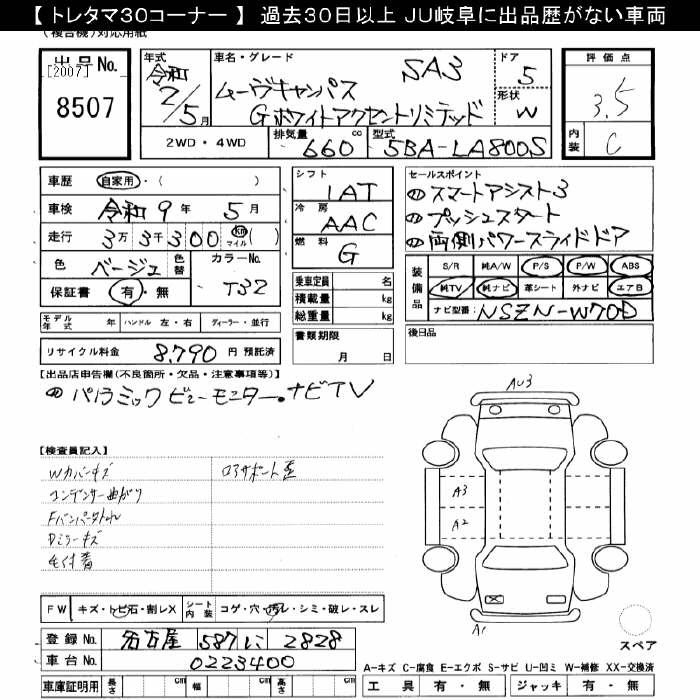 【トレタマ30コーナー】 過去30日以上 JU岐阜に出品歴がない車両
出品No.
[2007]
8507
年式 令和 2/5月
車名・グレード
SA3
ムーヴキャンバス
Gホワイトアクセントリミテッド
ドア 5
形状 W
評価点
3.5
内装 C
2WD・4WD 排気量 660 cc 型式 5BA-LA800S
車歴 自家用・( )
車検 令和 9年 5月
走行 3万3千300 km マイル ( )
色 ベージュ 色替 カラーNo. T32
保証書 有・無
シフト 1AT
冷房 AAC
燃料 G
乗車定員 名
積載量 kg
総重量 kg
セールスポイント
スマートアシスト3
プッシュスタート
両側パワースライドドア
装備品 S/R 純A/W P/S P/W ABS
純TV 純ナビ 革シート 外ナビ エアB
ナビ型番: NSZN-W70D
モデル年式 年 ハンドル 左・右 ディーラー・並行
書類期限 月 日
後日品
リサイクル料金 8,790 円 預託済
【出品店申告欄(不良箇所・欠品・注意事項等)】
パノラミックビューモニター・ナビTV
【検査員記入】
Wカバーキズ
コンデンサー曲がり
Dミラーキズ
毛付着
AU3
A3
A2
A1
FW キズ・トビ石・割レX シート内装 コゲ・穴・汚レ・シミ・破レ・スレ
登録No. 名古屋 587 い 2828
車台No. 0223400
車庫証明用 長さ cm 幅 cm 高さ cm
スペア
A-キズ C-腐食 E-エクボ S-サビ U-凹ミ W-補修 XX-交換済
工具 有・無 ジャッキ 有・無